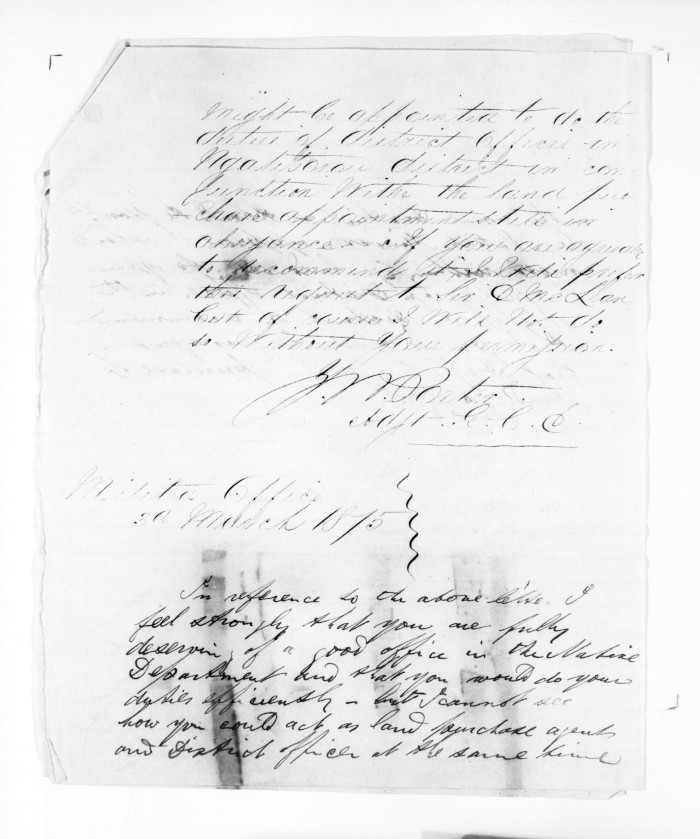 might be appointed to do the
duties of District Officer in
Ngatiporou district in con
junction Withe the land pur
chase appointment still in
abeyance – if you are
to recommend it I will prefer
this request to Sir D McLean
but of course I Will Not do
so Without your permission.
J. W. Porter
Adjt. E. C. D.
Militia Office
3d March 1875
In reference to the above letter I
feel strongly that you are fully
deserving of a good office in the Native
Department and that you would do your
duties efficiently – but I cannot see
how you could act as land purchase agents
and District officer at the same time